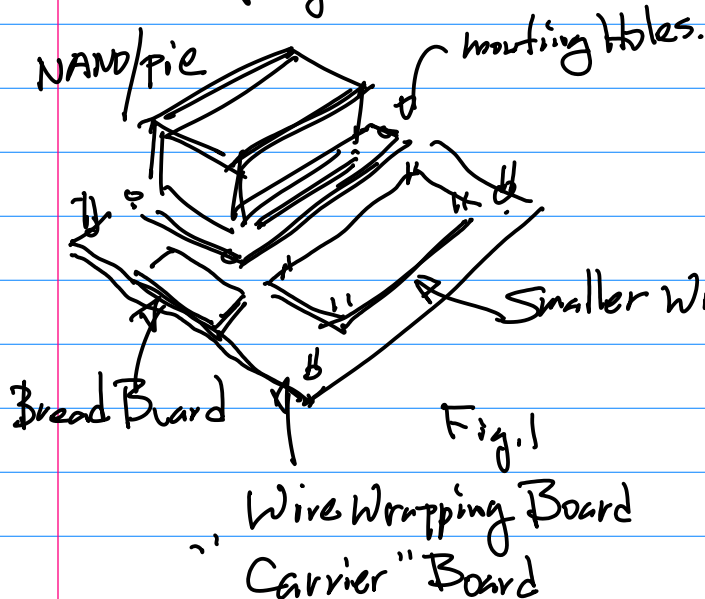 NANO/pie
mounting Holes.
Smaller Wi
Bread Board
Fig.1
Wire Wrapping Board
"Carrier" Board